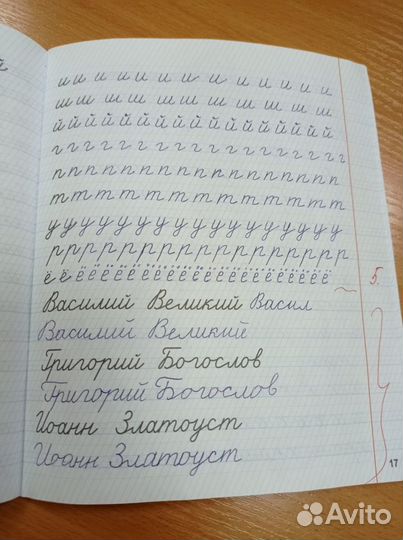 и и и и и и и и и и и и и
ш ш ш ш ш ш ш ш ш ш ш ш
й й й й й й й й й й й й й й й й
г г г г г г г г г г г г г г г г г
п п п п п п п п п п п п п п п п
т т т т т т т т т т т т т т
у у у у у у у у у у у у у у у у
р р р р р р р р р р р р р р р р р
ё ё ё ё ё ё ё ё ё ё ё ё ё ё ё ё ё ё ё ё
5.
Василий Великий Васил
Василий Великий
Григорий Богослов
Григорий Богослов
Иоанн Златоуст
Иоанн Златоуст
17
Avito